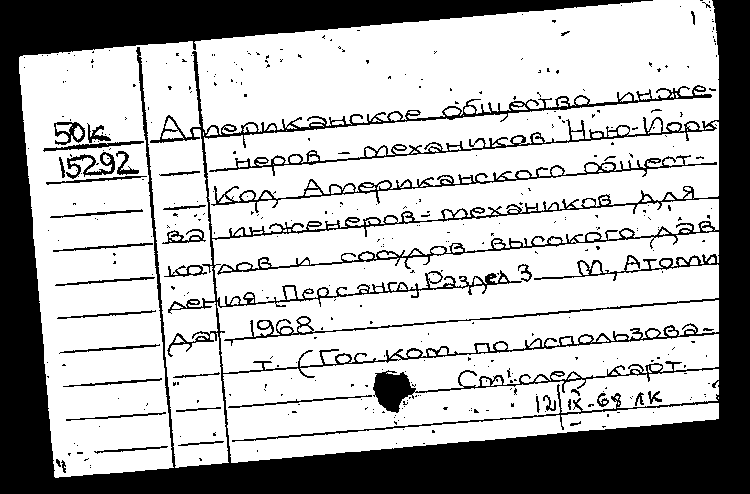 1
50к Американское общество инже-
15292 неров-механиков. Нью-Йорк
Код Американского общест-
ва инженеров-механиков для
котлов и сосудов высокого дав
ления. Пер с англ, Раздел 3 М., Атоми
дат, 1968.
т. (Гос. ком. по использова-
См. след. карт.
12/IX-68 лк